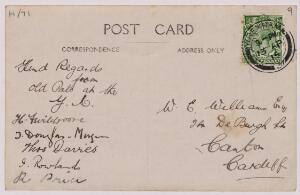 H/71
9
POST CARD
CORRESPONDENCE
ADDRESS ONLY
Kind Regards
from
Old Pals at the
Y.
W E Williams Esq
De Burgh St
Canton
Cardiff
J. Douglas
Thos Davies
J. Rowland
Price